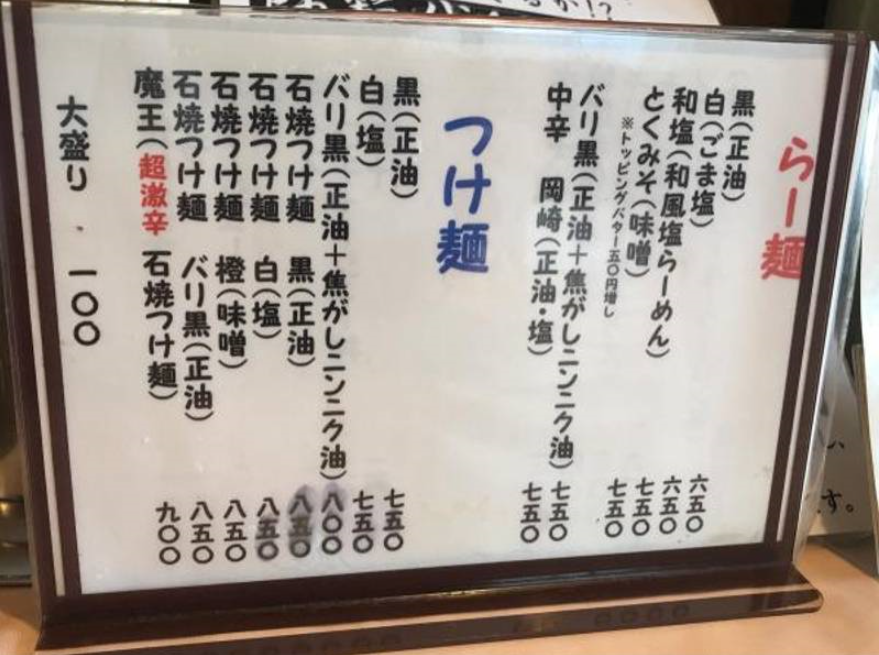 らー麺
黒(正油) 六五〇
白(ごま塩) 六五〇
和塩(和風塩らーめん) 七五〇
とくみそ(味噌) 七五〇
※トッピングバター五〇円増し
バリ黒(正油+焦がしニンニク油) 七五〇
中辛 岡崎(正油・塩) 七五〇
つけ麺
黒(正油) 七五〇
白(塩) 七五〇
バリ黒(正油+焦がしニンニク油) 八〇〇
石焼つけ麺 黒(正油) 八五〇
石焼つけ麺 白(塩) 八五〇
石焼つけ麺 橙(味噌) 八五〇
石焼つけ麺 バリ黒(正油) 八五〇
魔王(超激辛 石焼つけ麺) 九〇〇
大盛り 一〇〇
るか!?
す。